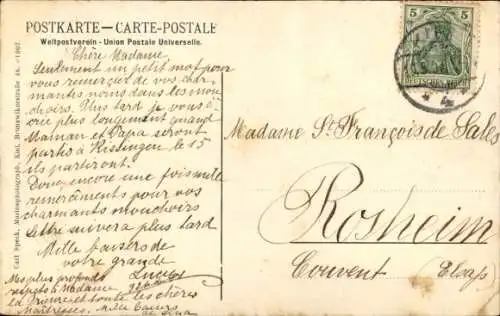 POSTKARTE — CARTE-POSTALE
Weltpostverein - Union Postale Universelle.
Chère Madame,
Seulement un petit mot pour
vous remercier de vos char-
mants noms dans les mou-
choirs. Plus tard je vous é-
crie plus longement quand
Maman et Papa seront
partis à Kissingen le 15
ils partiront.
Donc encore une fois mille
remerciments pour vos
charmants mouchoirs
lettre suivera plus tard
Mille baisers de
votre grande
Mes plus profonds
respets à Madame
la Prieure et toute les chères
Maitresses. Mille baisers
de
5
DEUTSCHES REICH
Madame St François de Sales
Rosheim
Couvent (Elsass)
Carl Speck, Marinephotograph, Kiel, Brunswikerstraße
1907